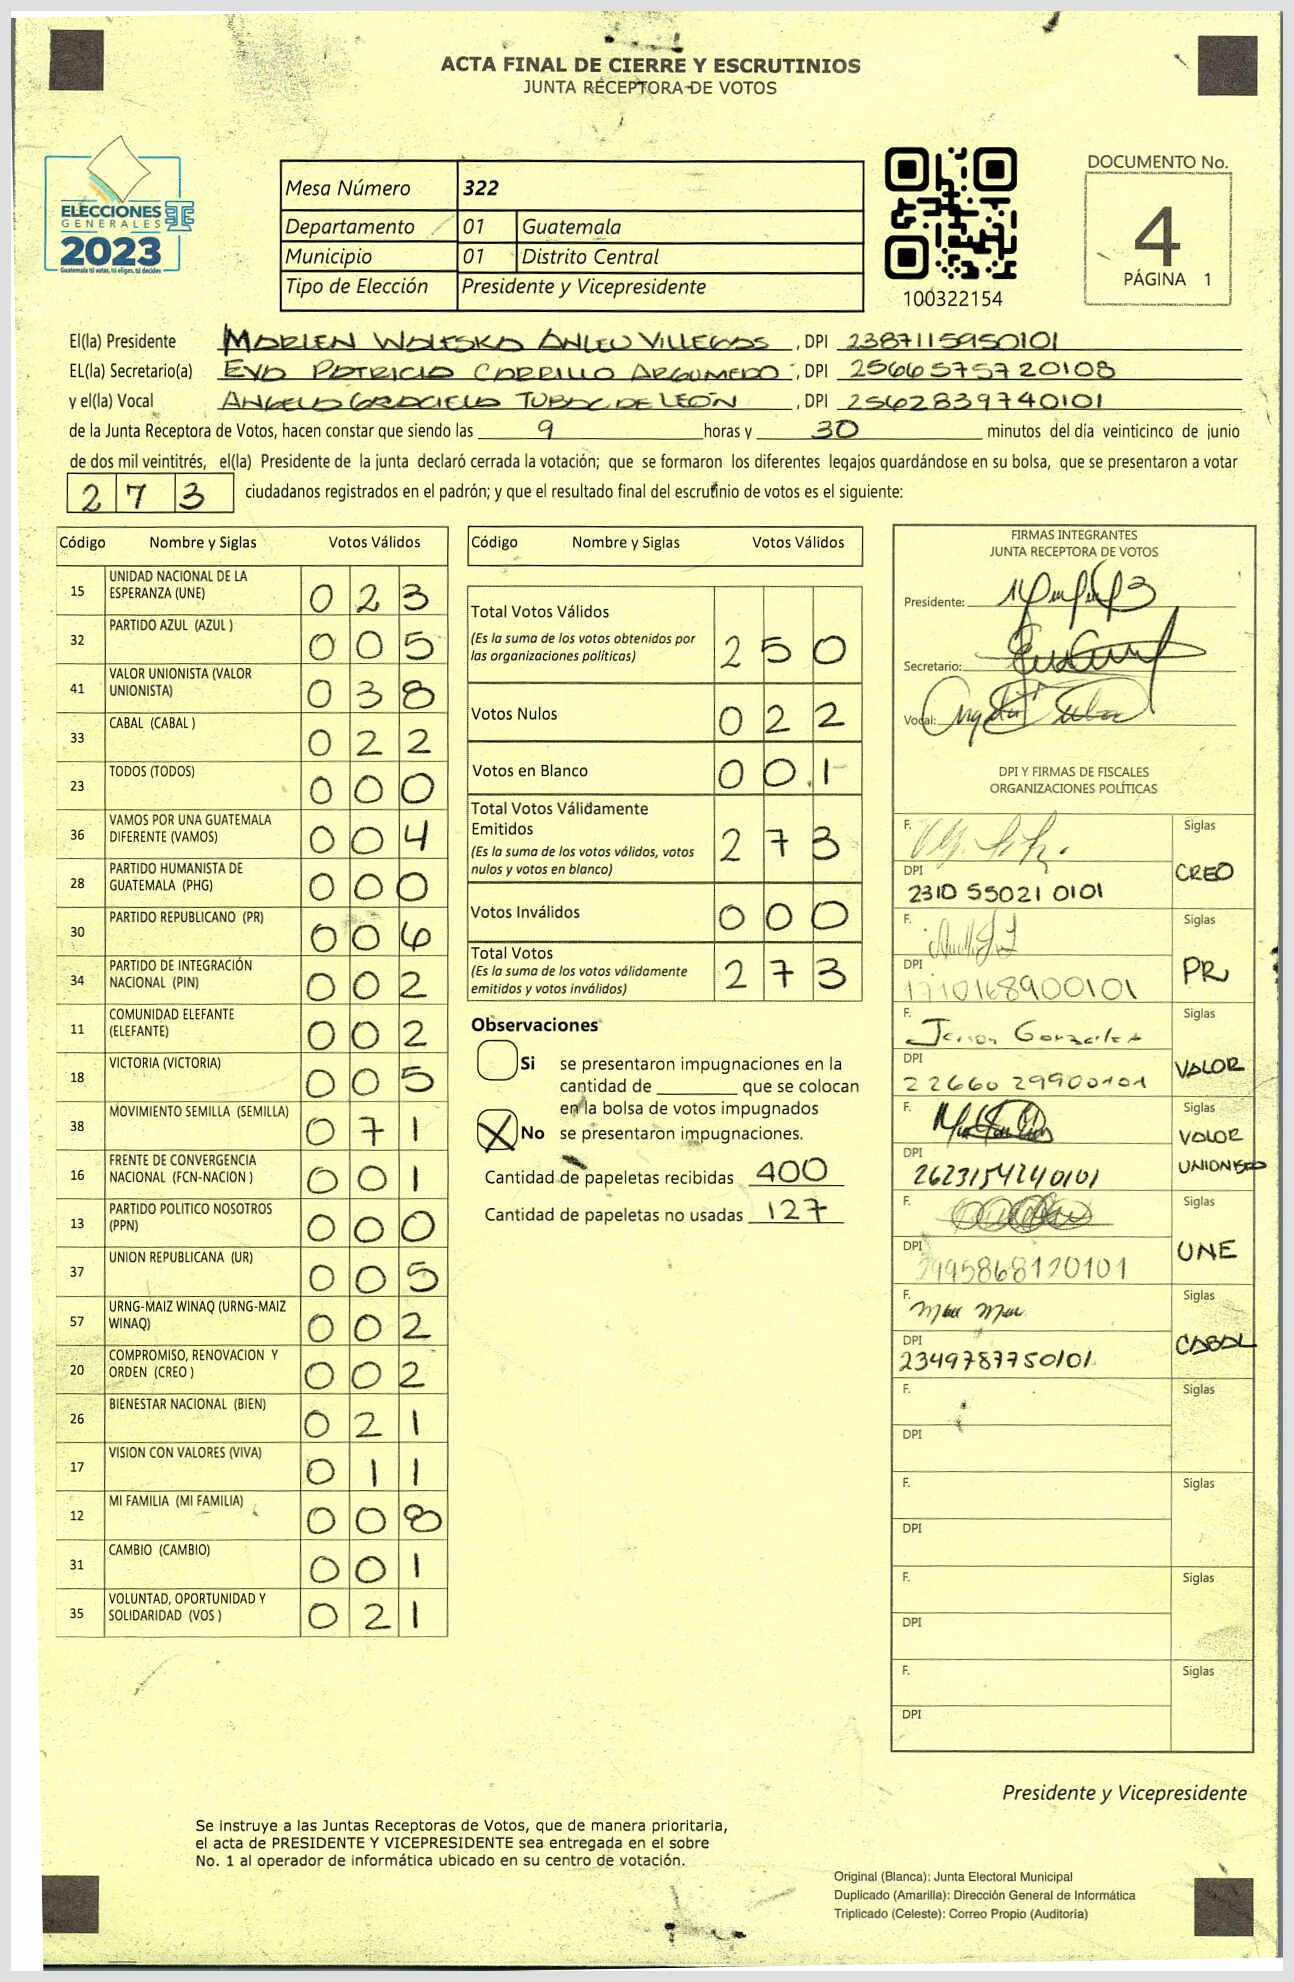 ACTA FINAL DE CIERRE Y ESCRUTINIOS
JUNTA RECEPTORA DE VOTOS
ELECCIONES
GENERALES
2023
Guatemala tú votas, tú eliges, tú decides
Mesa Número 322
Departamento 01 Guatemala
Municipio 01 Distrito Central
Tipo de Elección Presidente y Vicepresidente
100322154
DOCUMENTO No.
4
PÁGINA 1
El(la) Presidente MARLEN WALESKA ANLEU VILLEGAS, DPI 2387115950101
EL(la) Secretario(a) EVA PATRICIA CARRILLO ARGUMEDO, DPI 2566575720108
y el(la) Vocal ANGELA GRACIELA TUBAC DE LEÓN, DPI 2562839740101
de la Junta Receptora de Votos, hacen constar que siendo las 9 horas y 30 minutos del día veinticinco de junio
de dos mil veintitrés, el(la) Presidente de la junta declaró cerrada la votación; que se formaron los diferentes legajos guardándose en su bolsa, que se presentaron a votar
273 ciudadanos registrados en el padrón; y que el resultado final del escrutinio de votos es el siguiente:
Código Nombre y Siglas Votos Válidos
15 UNIDAD NACIONAL DE LA ESPERANZA (UNE) 023
32 PARTIDO AZUL (AZUL ) 005
41 VALOR UNIONISTA (VALOR UNIONISTA) 038
33 CABAL (CABAL ) 022
23 TODOS (TODOS) 000
36 VAMOS POR UNA GUATEMALA DIFERENTE (VAMOS) 004
28 PARTIDO HUMANISTA DE GUATEMALA (PHG) 000
30 PARTIDO REPUBLICANO (PR) 006
34 PARTIDO DE INTEGRACIÓN NACIONAL (PIN) 002
11 COMUNIDAD ELEFANTE (ELEFANTE) 002
18 VICTORIA (VICTORIA) 005
38 MOVIMIENTO SEMILLA (SEMILLA) 071
16 FRENTE DE CONVERGENCIA NACIONAL (FCN-NACION ) 001
13 PARTIDO POLITICO NOSOTROS (PPN) 000
37 UNION REPUBLICANA (UR) 005
57 URNG-MAIZ WINAQ (URNG-MAIZ WINAQ) 002
20 COMPROMISO, RENOVACION Y ORDEN (CREO ) 002
26 BIENESTAR NACIONAL (BIEN) 021
17 VISION CON VALORES (VIVA) 011
12 MI FAMILIA (MI FAMILIA) 008
31 CAMBIO (CAMBIO) 001
35 VOLUNTAD, OPORTUNIDAD Y SOLIDARIDAD (VOS ) 021
Código Nombre y Siglas Votos Válidos
Total Votos Válidos
(Es la suma de los votos obtenidos por las organizaciones políticas) 250
Votos Nulos 022
Votos en Blanco 001
Total Votos Válidamente Emitidos
(Es la suma de los votos válidos, votos nulos y votos en blanco) 273
Votos Inválidos 000
Total Votos
(Es la suma de los votos válidamente emitidos y votos inválidos) 273
Observaciones
Si se presentaron impugnaciones en la
cantidad de ________ que se colocan
en la bolsa de votos impugnados
X No se presentaron impugnaciones.
Cantidad de papeletas recibidas 400
Cantidad de papeletas no usadas 127
FIRMAS INTEGRANTES
JUNTA RECEPTORA DE VOTOS
Presidente:
Secretario:
Vocal:
DPI Y FIRMAS DE FISCALES
ORGANIZACIONES POLÍTICAS
F. Siglas
DPI CREO
2310 55021 0101
F. Siglas
DPI PR
1710168900101
F. Siglas
DPI VALOR
22660 29900101
F. Siglas
VALOR
DPI UNIONISTA
2623154240101
F. Siglas
DPI UNE
2995868120101
F. Siglas
DPI CABAL
2349787750101
F. Siglas
DPI
F. Siglas
DPI
F. Siglas
DPI
F. Siglas
DPI
Presidente y Vicepresidente
Se instruye a las Juntas Receptoras de Votos, que de manera prioritaria,
el acta de PRESIDENTE Y VICEPRESIDENTE sea entregada en el sobre
No. 1 al operador de informática ubicado en su centro de votación.
Original (Blanca): Junta Electoral Municipal
Duplicado (Amarilla): Dirección General de Informática
Triplicado (Celeste): Correo Propio (Auditoría)